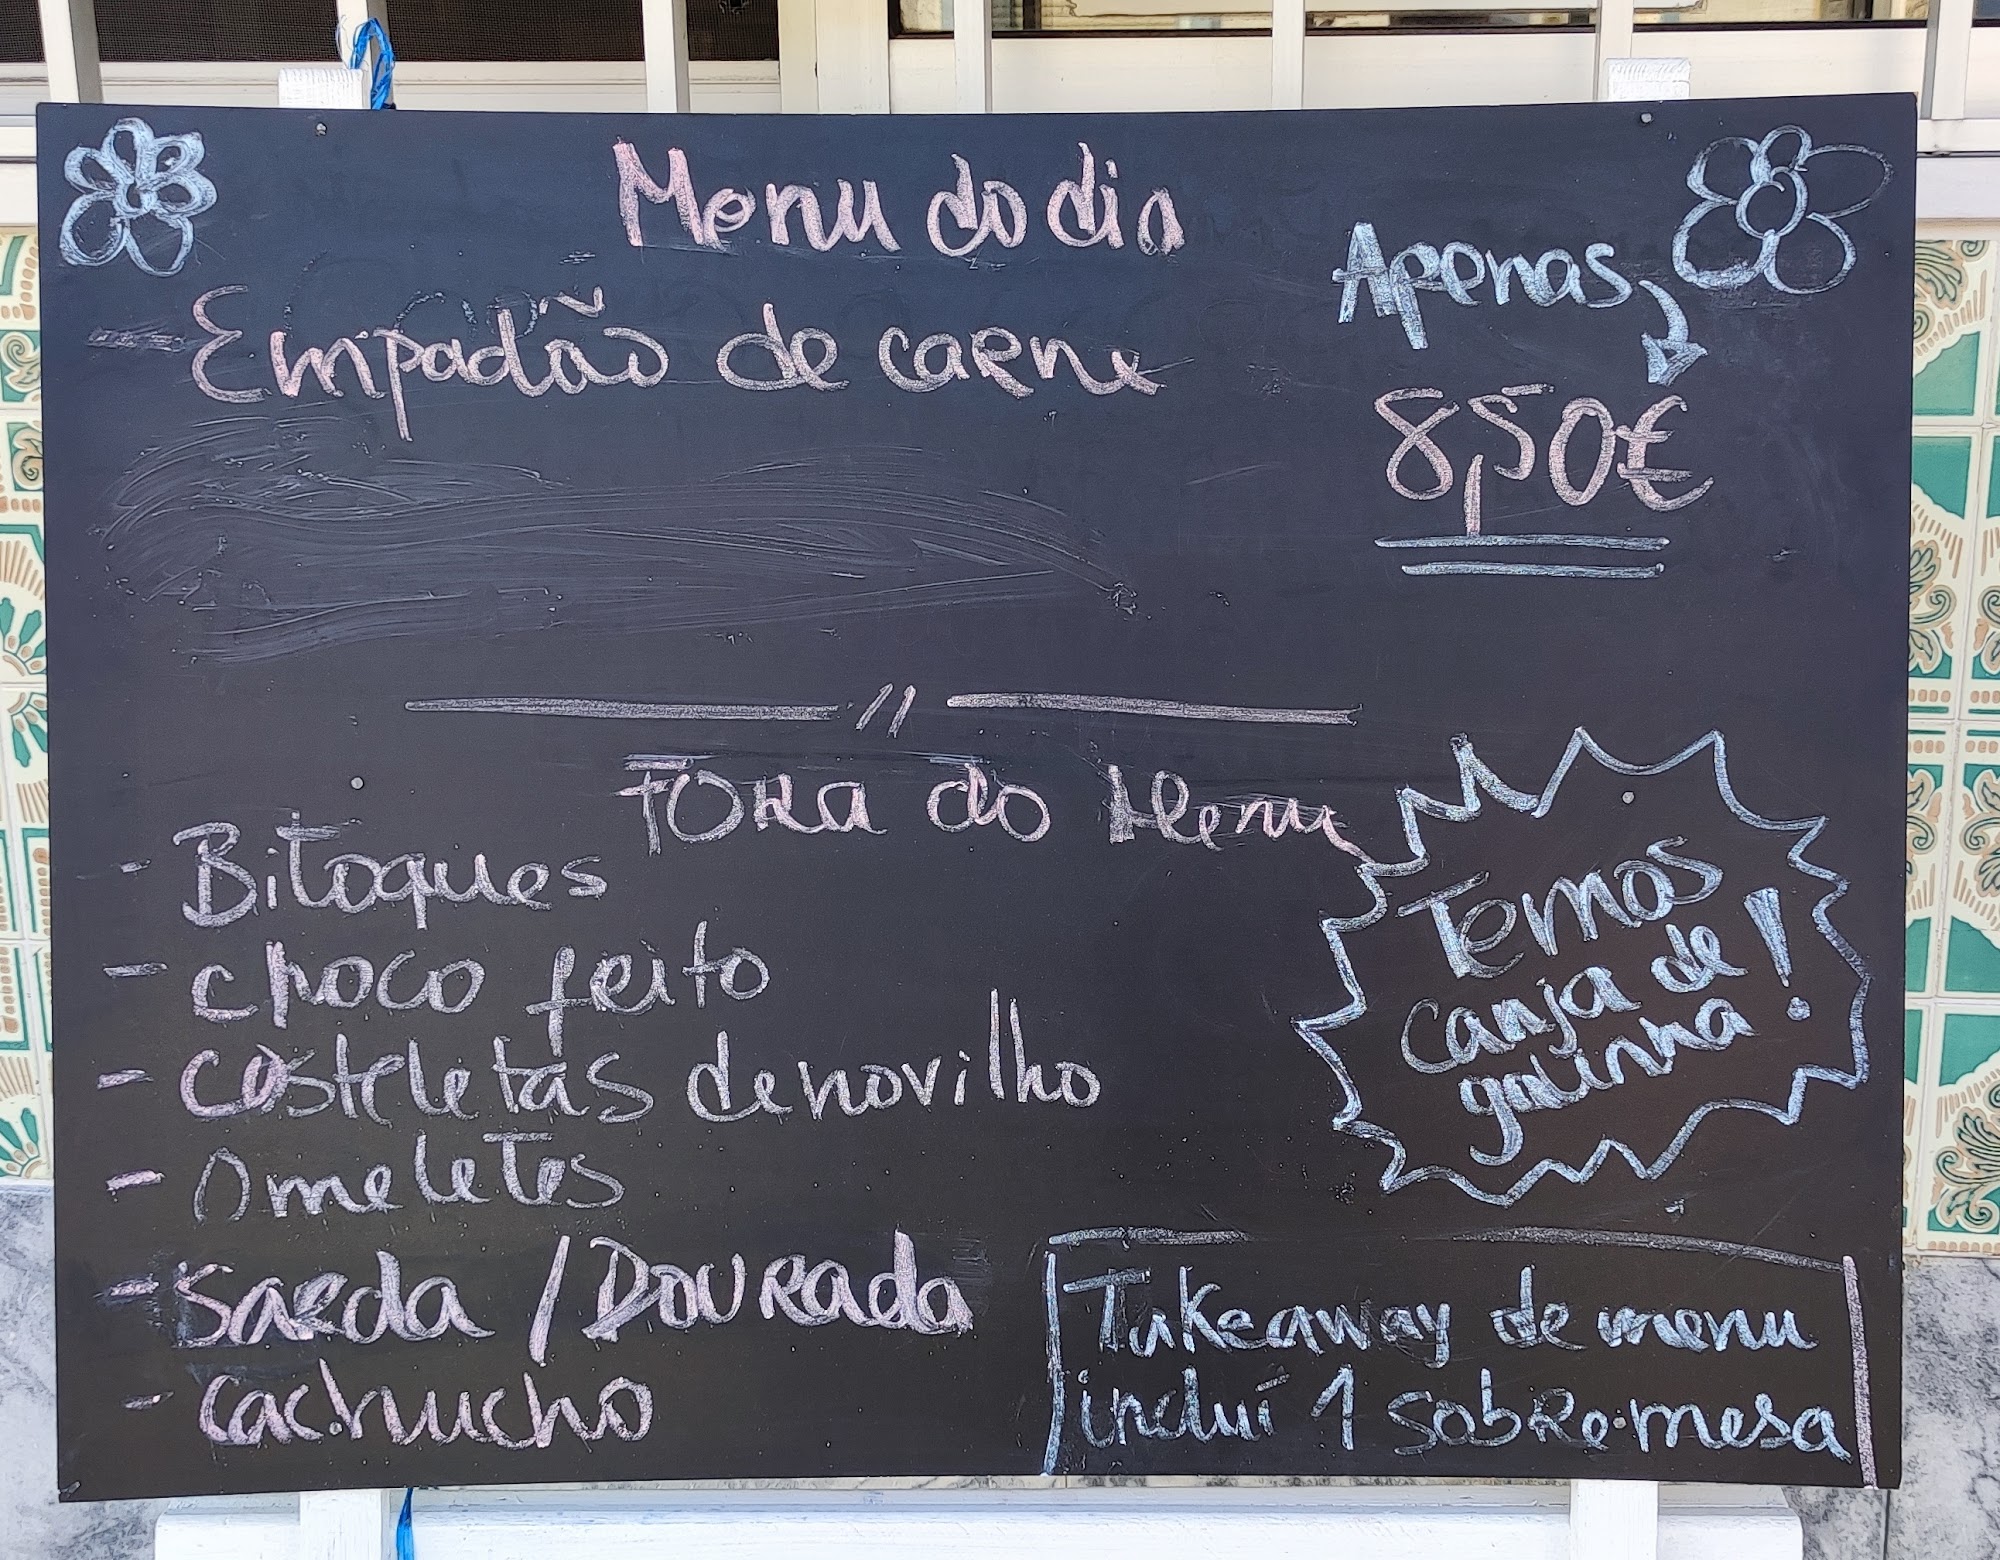 Menu do dia
- Empadão de carne
Apenas
8,50€
Fora do Menu
- Bitoques
- choco feito
- costeletas de novilho
- Omeletes
- Sarda / Dourada
- cachucho
Temos
canja de
galinha!
Takeaway de menu
incluí 1 sobremesa